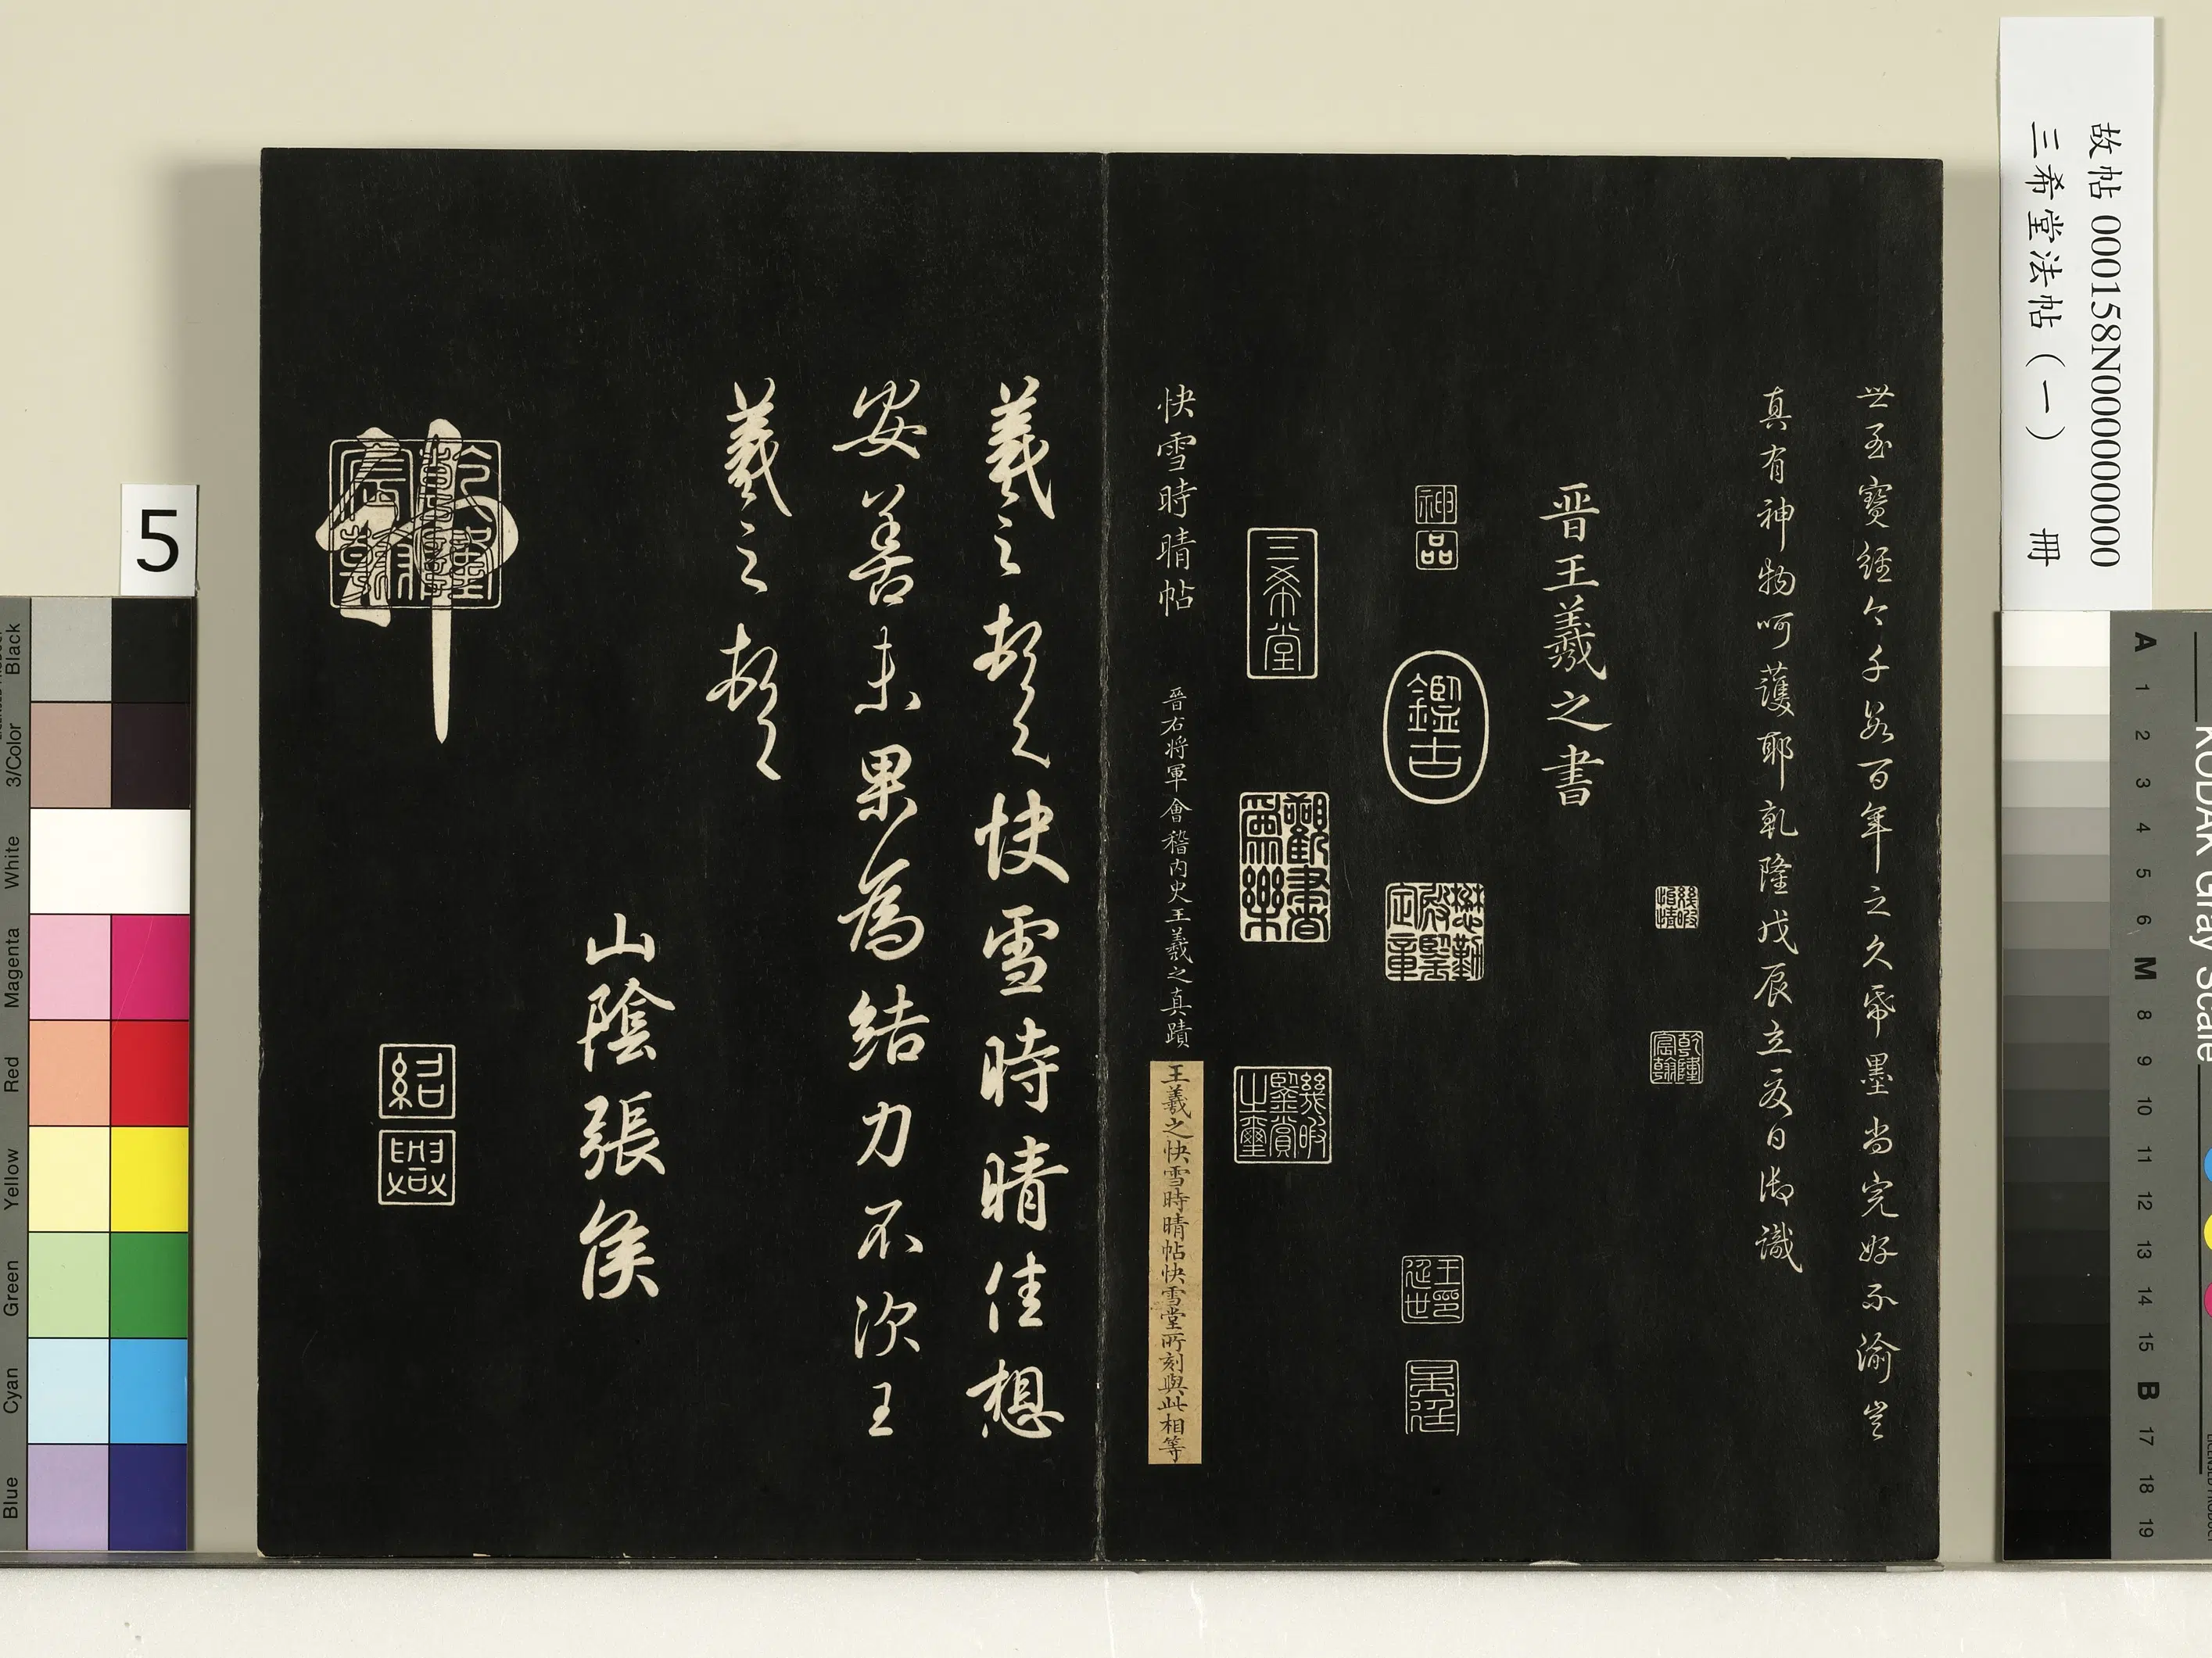 故帖 000158N000000000
三希堂法帖（一） 冊
世至寶經今千數百年之久帋墨尚完好不渝豈
真有神物呵護耶乾隆戊辰立夏日御識
幾暇怡情
乾隆宸翰
晉王羲之書
神品
鑑古
懋勤殿鑒定章
王延世印
吳廷
三希堂
觀書為樂
幾暇鑒賞之璽
快雪時晴帖 晉右將軍會稽內史王羲之真蹟
王羲之快雪時晴帖快雪堂所刻與此相等
羲之頓首快雪時晴佳想
安善未果為結力不次王
羲之頓首
山陰張侯
神
乾隆宸翰
紹興
5
Black
3/Color
White
Magenta
Red
Yellow
Green
Cyan
Blue
KODAK Gray Scale
A 1 2 3 4 5 6 M 8 9 10 11 12 13 14 15 B 17 18 19